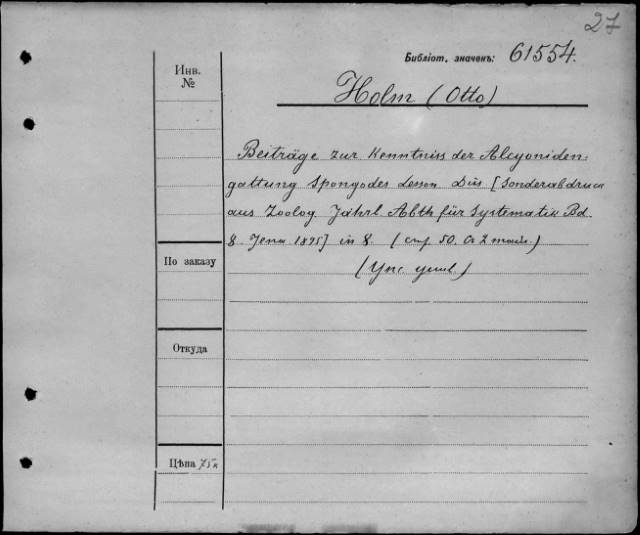 27
Библіот. значенъ: 61554.
Инв.
№
Holm (Otto)
Beiträge zur Kenntniss der Alcyoniden-
gattung Spongodes Lesson Dis [Sonderabdruck
aus Zoolog Jährb Abth für Systematik Bd.
8 Jena 1895] in 8. (стр. 50. Съ 2 табл.)
По заказу
Откуда
Цѣна 75к